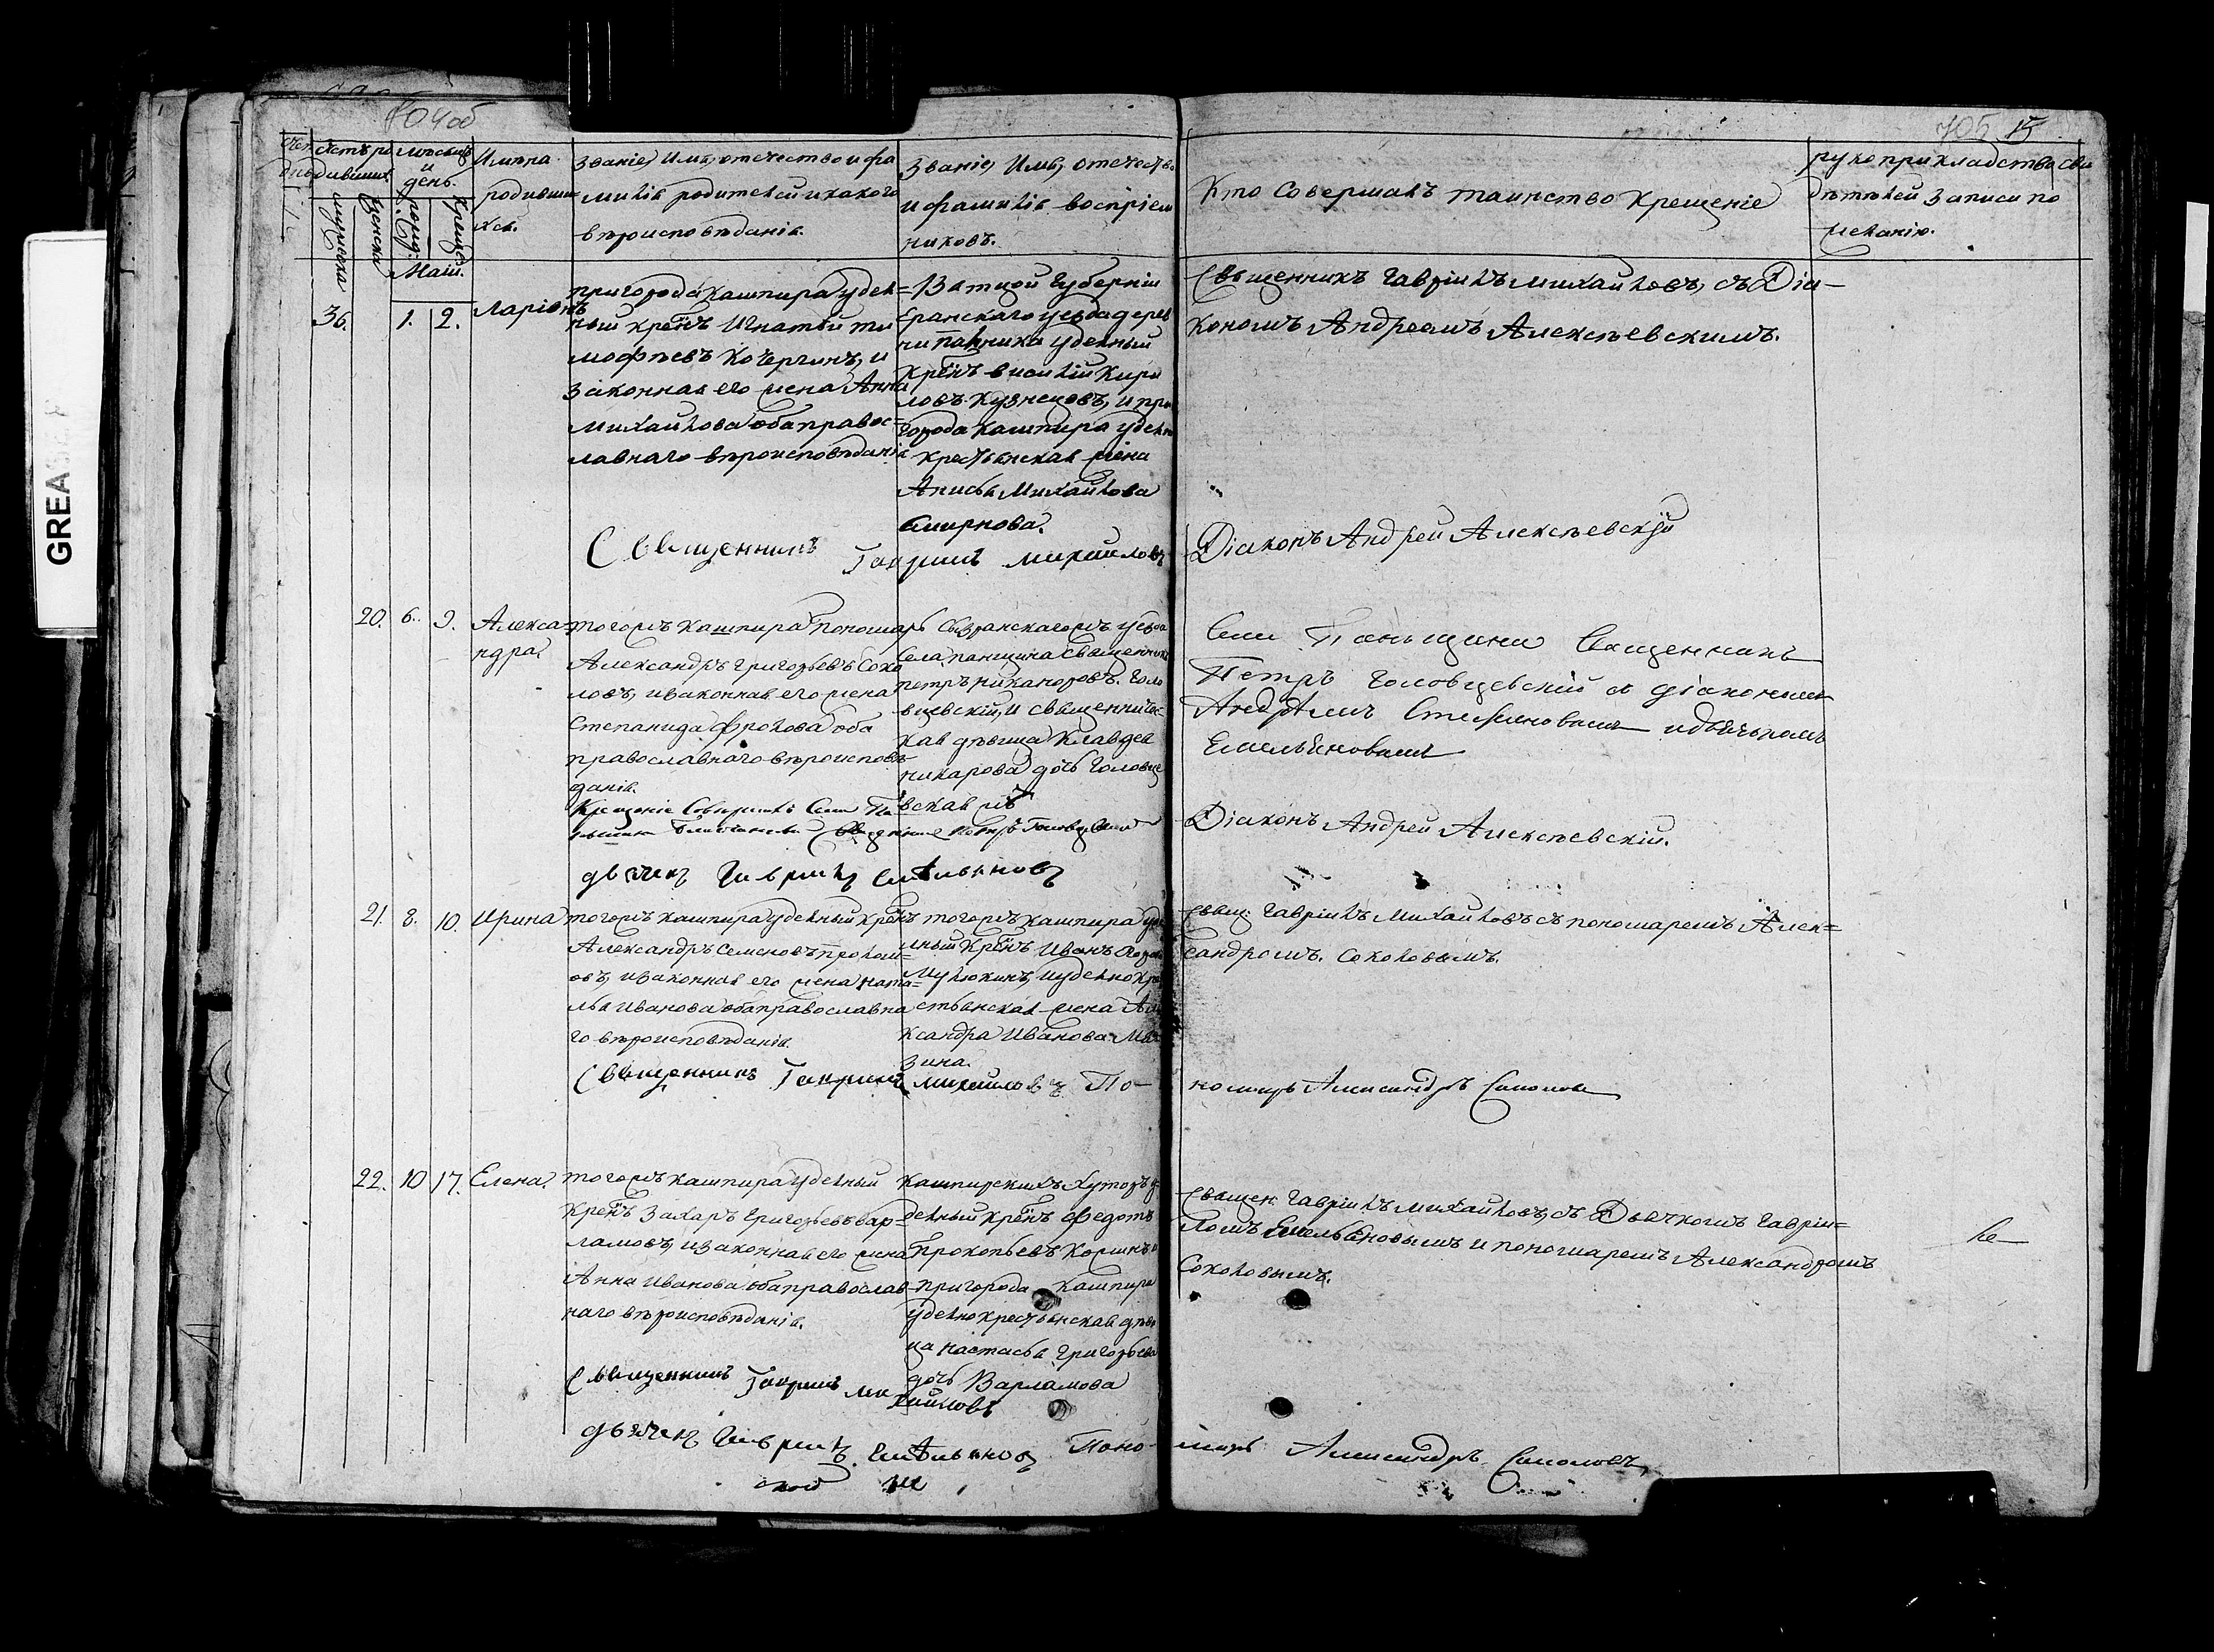 704об
705 15
Счетъ родившихся
Мѣсяцъ и день.
Имена родивши хся.
Званіе, Имя, отчество и фа
милія родителей и какого
вѣроисповѣданія.
Званіе, Имя, отечество
и фамилія воспріем
никовъ.
Кто совершалъ таинство крещеніе
рукоприкладство сви
дѣтелей записи по
желанію.
мужеска
женска
Маій.
36. 1. 2. Ларіонъ
пригорода Кашпира удѣль=
ный крѣнъ Игнатій ти
мофѣевъ Кочергинъ, и
законная его жена Анна
Михайлова оба правос=
лавнаго вѣроисповѣданія
Вятской Губерніи
Еранскаго уезда дерев
ни удельный
Крѣнъ Василій Кири
ловъ Кузнецовъ, и при
города Кашпира удельно
крестьянская жена
Анисья Михайлова
Смирнова.
Священникъ Гавріилъ Михайловъ, съ Діа-
кономъ Андреемъ Алексѣевскимъ.
Священникъ Гавриилъ Михайловъ
Діаконъ Андрей Алексѣевскій
20. 6. 9. Алекса=
ндра
тогожъ Кашпира Пономарь
Александръ Григорьевъ Соко
ловъ, и законная его жена
Степанида Фролова оба
православнаго вѣроисповѣ
данія.
Сызранскагожъ уезда
села панщина Священникъ
петръ никаноровъ. Голо
вцевскій, и священничес=
кая дѣвица Клавдея
никарова дочь Головце
вская
Села Паньщины Священникъ
Петръ Головцевскій съ діакономъ
Андреемъ Стефановымъ и дьячькомъ
Емельяновымъ
Крещеніе Совершилъ Села Па
Священникъ Петръ Головцевскій
Діаконъ Андрей Алексѣевскій.
дьячекъ Гаврилъ Емельяновъ
21. 8. 10. Ирина
тогожъ Кашпира удельный крѣнъ
Александръ Семеновъ прохом=
овъ, и законная его жена ната=
лья Иванова оба православна
го вѣроисповѣданія.
тогожъ Кашпира уде
льный Крѣнъ Иванъ
Мулюкинъ, и удельнокре
стьянская жена Але
ксандра Иванова
зина.
Свящ: Гавріилъ Михайловъ съ пономаремъ Алек=
сандромъ. Соколовымъ.
Священникъ Гавриилъ Михайловъ По-
номарь Александръ Соколовъ
22. 10 17. Елена.
тогожъ Кашпира удельный
Крѣнъ Захаръ Григорьевъ вар=
ламовъ, и законная его жена
Анна Иванова оба православ=
наго вѣроисповѣданія.
Кашпирскихъ Хуторъ у=
дельный крѣнъ Федотъ
Прокопьевъ Коминъ и
пригорода Кашпира
удельнокрестьянская дѣви
ца Настасья Григорьева
дочь Варламова
Священ: Гавріилъ Михайловъ, съ Дьячкомъ Гаврии=
ломъ Емельяновымъ и пономаремъ Александромъ
Соколовымъ.
Священникъ Гавриилъ Ми
хайловъ
дьячекъ Гаврилъ Емельяновъ Поно-
марь Александръ Соколовъ
GREA